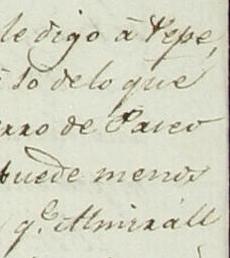 le digo á Pepe,
to de lo que
erro de Pasco
puede menos
q.e Almirall